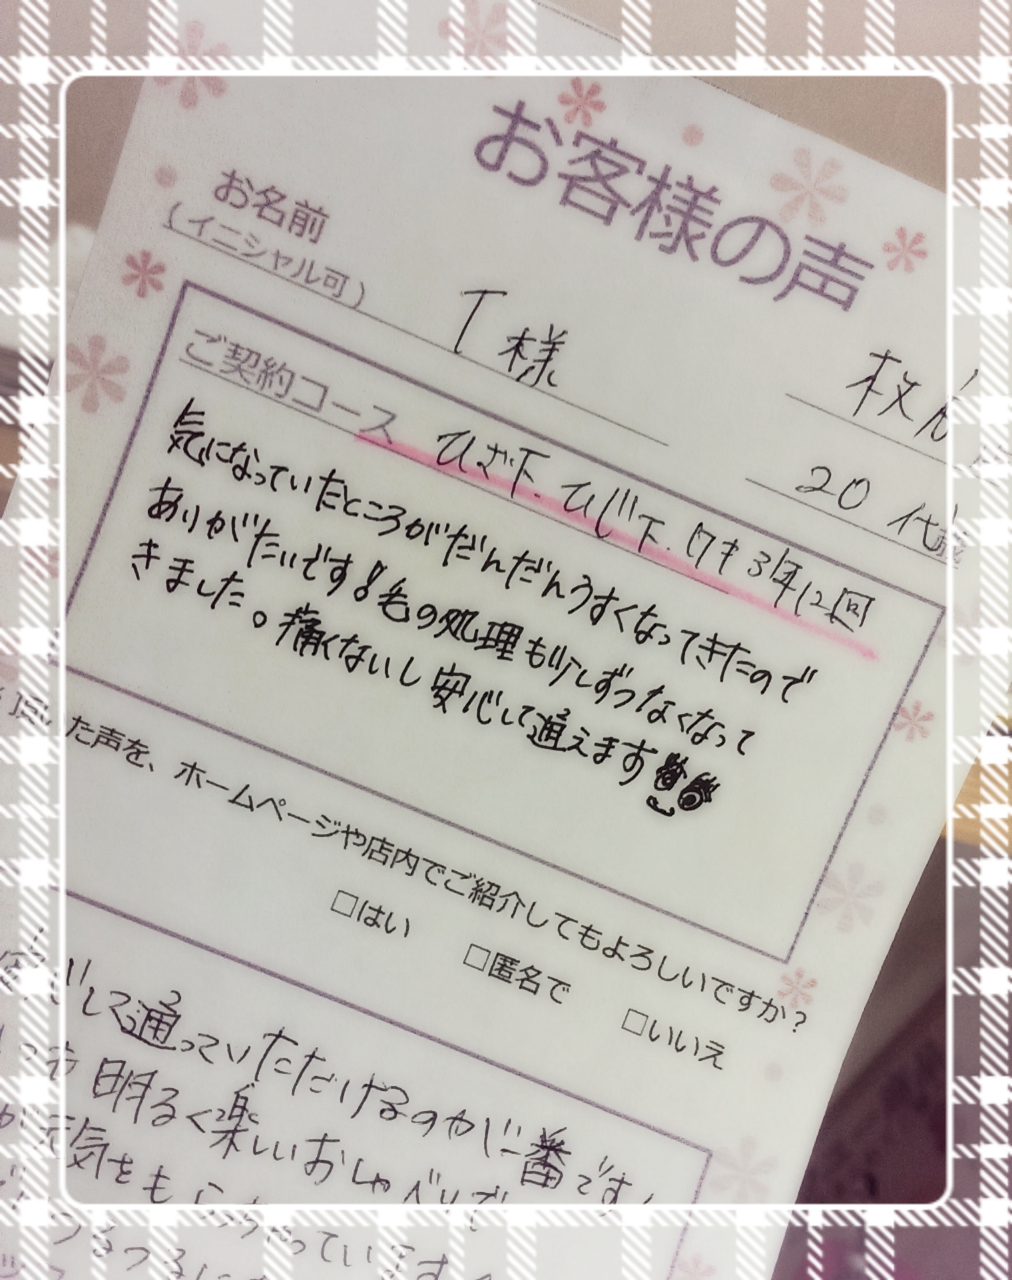 お客様の声
お名前
(イニシャル可)
T様
枚方
20代
ご契約コース ひざ下、ひじ下、ワキ3年12回
気になっていたところがだんだんうすくなってきたので
ありがたいです!毛の処理も少しずつなくなって
きました。痛くないし安心して通えます
た声を、ホームページや店内でご紹介してもよろしいですか?
□はい □匿名で □いいえ
して通っていただけるのが一番です!
明るく楽しいおしゃべりで
元気をもらっちゃっています
つるつるに